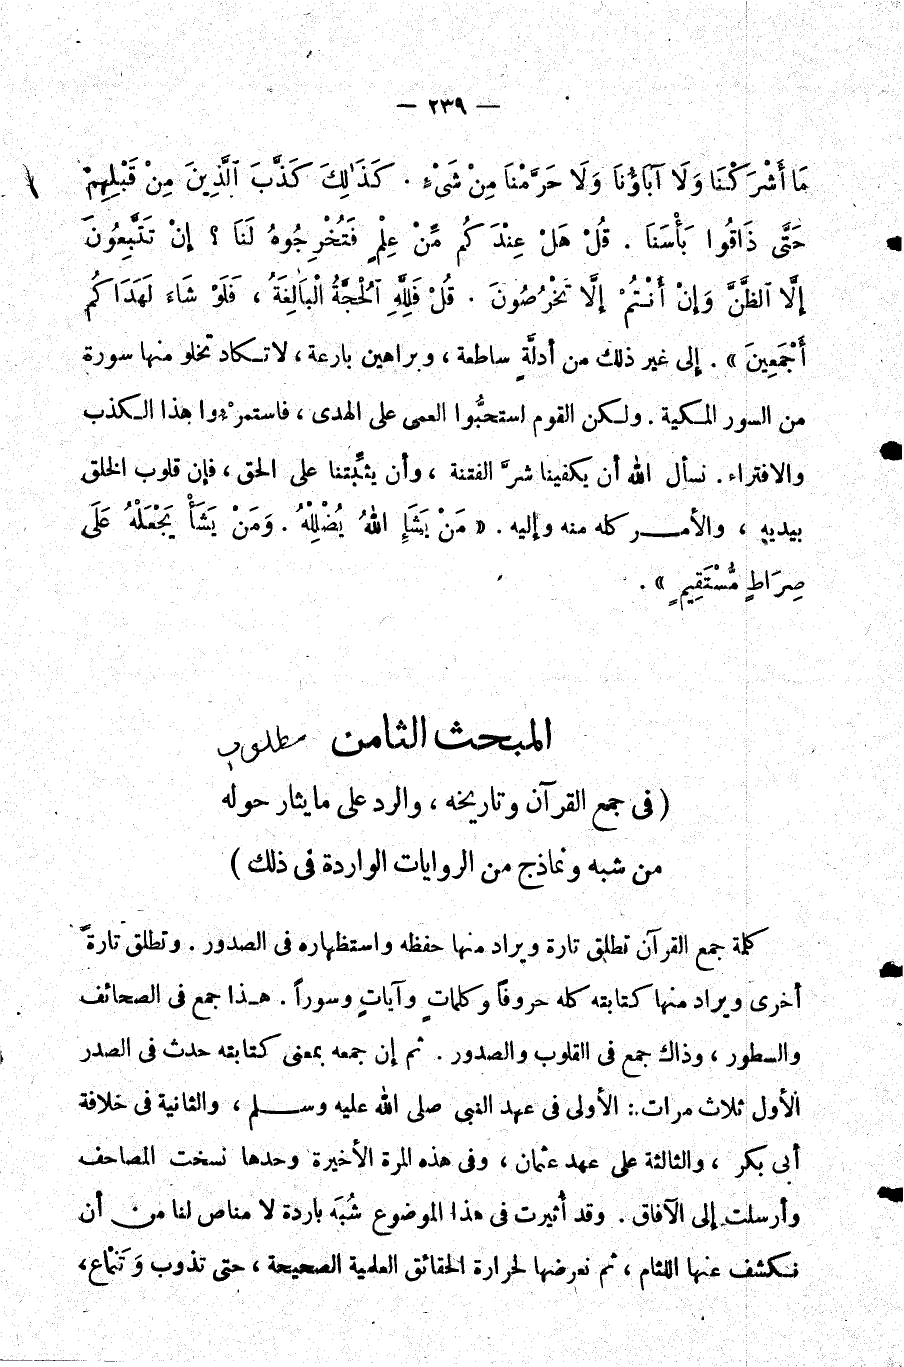 — ٢٣٩ —
مَا أَشْرَكْنَا وَلَا آبَاؤُنَا وَلَا حَرَّمْنَا مِنْ شَىْءٍ . كَذَٰلِكَ كَذَّبَ ٱلَّذِينَ مِنْ قَبْلِهِمْ
حَتَّى ذَاقُوا بَأْسَنَا . قُلْ هَلْ عِنْدَكُم مِّنْ عِلْمٍ فَتُخْرِجُوهُ لَنَا ؟ إِنْ تَتَّبِعُونَ
إِلَّا ٱلظَّنَّ وَإِنْ أَنْتُمْ إِلَّا تَخْرُصُونَ . قُلْ فَلِلَّهِ ٱلْحُجَّةُ الْبَالِغَةُ ، فَلَوْ شَاءَ لَهَدَاكُم
أَجْمَعِينَ » . إلى غير ذلك من أدلَّةٍ ساطعة ، وبراهين بارعة ، لا تكاد تخلو منها سورة
من السور المكية . ولكن القوم استحبُّوا العمى على الهدى ، فاستمرْءوا هذا الكذب
والافتراء . نسأل الله أن يكفينا شرَّ الفتنة ، وأن يثبِّتنا على الحق ، فإن قلوب الخلق
بيديهِ ، والأمر كله منه وإليه . « مَنْ يَشَإِ اللهُ يُضْلِلْهُ . وَمَنْ يَشَأْ يَجْعَلْهُ عَلَى
صِرَاطٍ مُّسْتَقِيمٍ » .
المبحث الثامن مطلوب
( فى جمع القرآن وتاريخه ، والرد على ما يثار حوله
من شبه ونماذج من الروايات الواردة فى ذلك )
كلمة جمع القرآن تطلق تارة ويراد منها حفظه واستظهاره فى الصدور . وتطلق تارةً
أخرى ويراد منها كتابته كله حروفاً وكلماتٍ وآياتٍ وسوراً . هذا جمع فى الصحائف
والسطور ، وذاك جمع فى القلوب والصدور . ثم إن جمعه بمعنى كتابته حدث فى الصدر
الأول ثلاث مرات : الأولى فى عهد النبى صلى الله عليه وسلم ، والثانية فى خلافة
أبى بكر ، والثالثة على عهد عثمان ، وفى هذه المرة الأخيرة وحدها نسخت المصاحف
وأرسلت إلى الآفاق . وقد أُثيرت فى هذا الموضوع شُبَه باردة لا مناص لنا من أن
نكشف عنها اللثام ، ثم نعرضها لحرارة الحقائق العلمية الصحيحة ، حتى تذوب وَتَنْماع ،